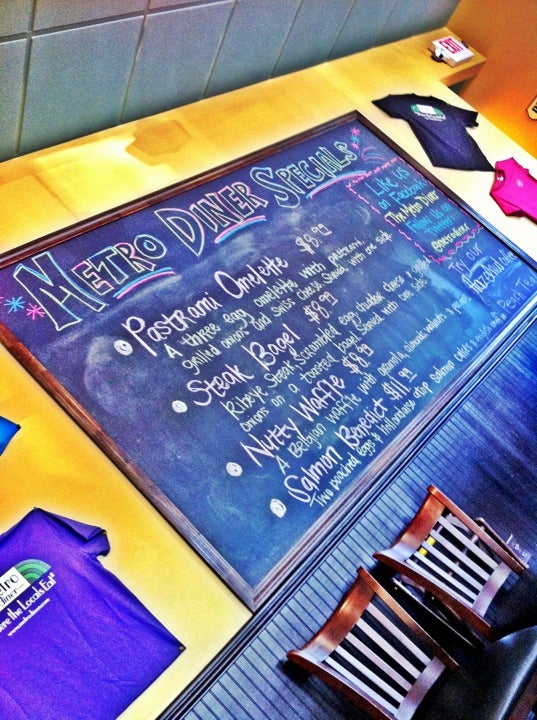 EXIT
METRO DINER SPECIALS
Pastrami Omelette $8.99
A three egg omelette with pastrami,
grilled onions and Swiss cheese. Served with one side
Steak Bagel $8.99
Ribeye Steak, Scrambled egg, cheddar cheese & grilled
onions on a toasted bagel. Served with one side
Nutty Waffle $8.99
A Belgian waffle with granola, almond, walnuts &
Salmon Benedict $11.99
Two poached eggs & Hollandaise atop Salmon cakes &
Like us
on Facebook
The Metro Diner
Follow us on
Try our
Hazelnut
Peach Tea
etro
diner
ere the Locals Eat